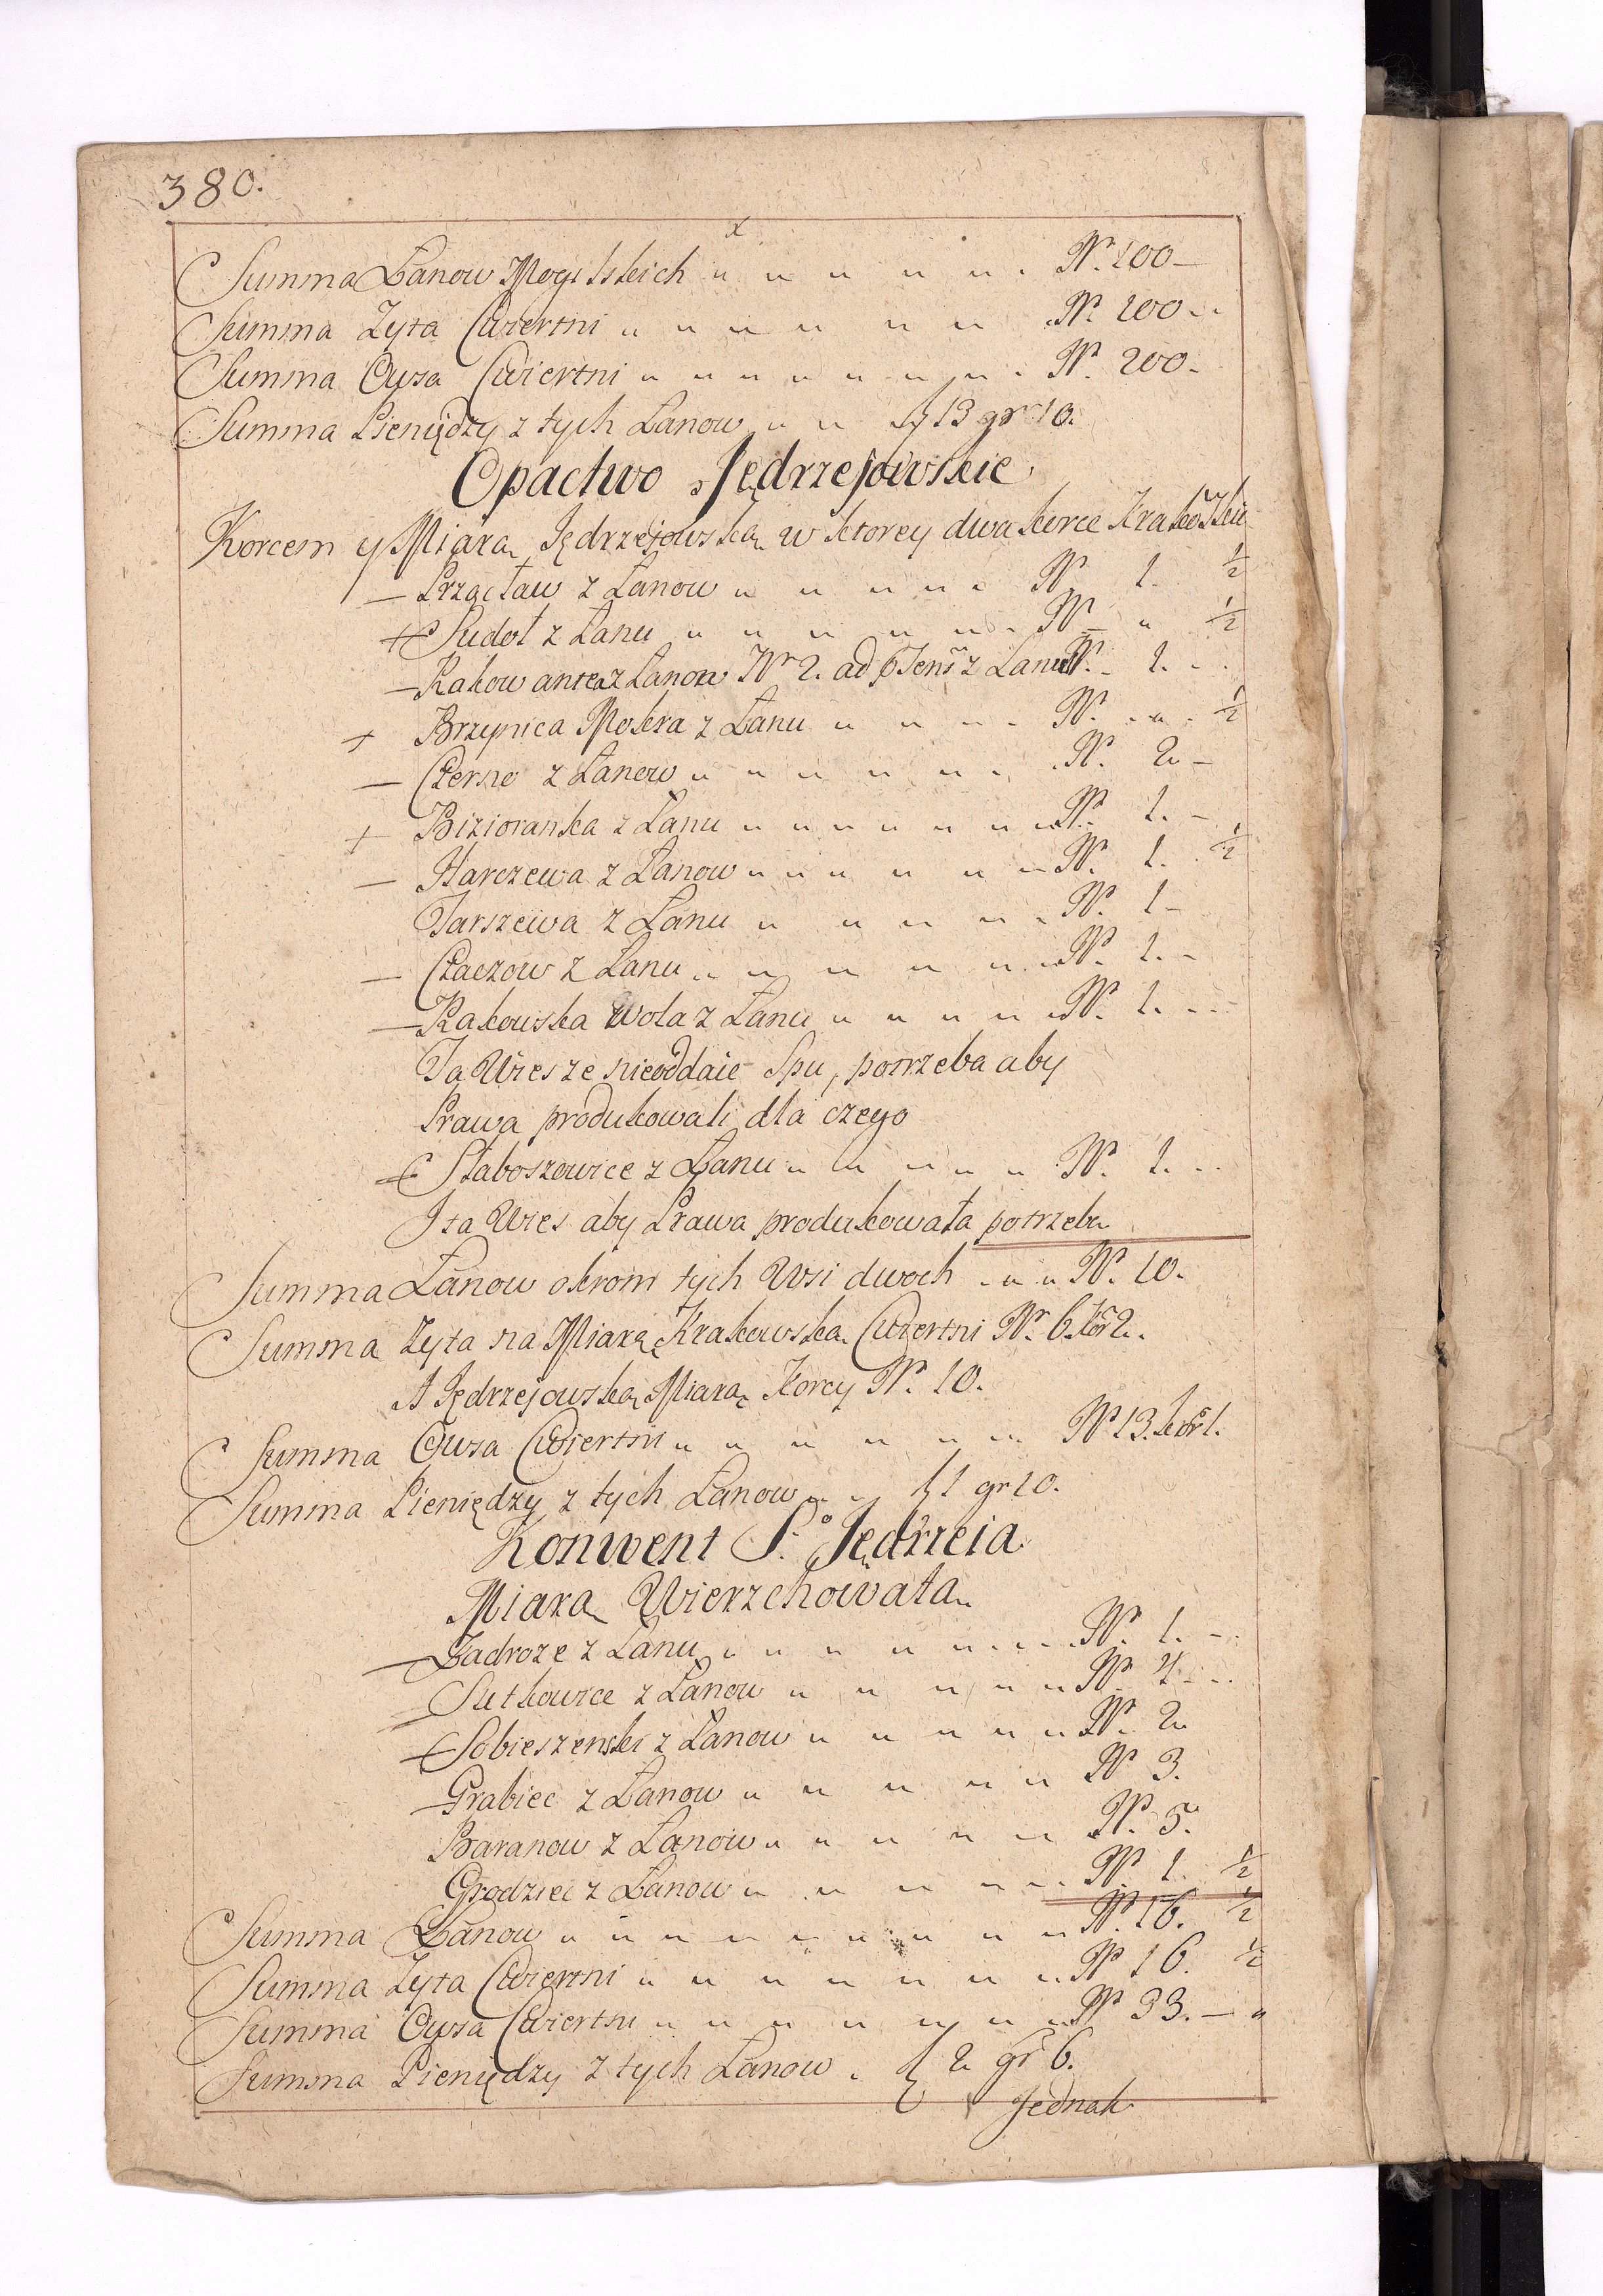 380.
Summa Łanow Mogilskich " " " " " . Nr. 100 —
Summa Zyta Cwiertni " " " " " " . Nr. 100 - .
Summa Owsa Cwiertni " " " " " " " . Nr. 200 -
Summa Pieniędzy z tych Łanow " " zł 13 gr 10.
Opactwo Jędrzejowskie
Korcem y Miarą Jędrzejowską w ktorey dwa korce Krakowskie
— Przącław z Łanow " " " " " Nr. 1. ½
+ Sudoł z Łanu " " " " " . Nr — " ½
— Rakow antea z Łanow Nr 2. ad p̄sens z Łanu Nr. - 1. - .
+ Brzeynica Mokra z Łanu " " " - Nr. . " . ½
— Czerno z Łanow " " " " " " . . Nr. 2 —
+ Bizioranka z Łanu " " " " " " " Nr. 1. -
— Harczewa z Łanow " " " " " " Nr. 1. ½
Tarszewa z Łanu " " " " - Nr. 1 -
— Czaczow z Łanu " " " " " . " Nr. 1. -
— Rakowska Wola z Łanu " " " " " Nr. 1. - -
Ta Wies ze nieoddaie Spu, potrzeba aby
Prawa produkowali dla czego
+ Słaboszowice z Łanu " " " " " . Nr. 1. - .
I ta Wies aby Prawa produkowała potrzeba
Summa Łanow okrom tych Wsi dwoch . " " Nr. 10.
Summa Zyta na Miarę Krakowską Cwiertni Nr. 6. kor 2.
A Jędrzejowską Miarą Korcy Nr. 10.
Summa Owsa Cwiertni " " " " " " . Nr 13. kor 1.
Summa Pieniędzy z tych Łanow " " zł 1 gr 10.
Konwent S.o Jędrzeia
Miara Wierzchowata
— Zadroze z Łanu " " " " " - - . Nr. 1. - .
— Sutkowice z Łanow " " " " " Nr 4 - .
— Sobieszenski z Łanow " " " " " Nr. 2
— Grabiec z Łanow " " " " " Nr 3.
Baranow z Łanow " " " " " Nr. 5.
Grodziec z Łanow " " " " " . Nr. 1. ½
Summa Łanow " " " " " " " " " Nr. 16. ½
Summa Zyta Cwiertni " " " " " " " " Nr 16. ½
Summa Owsa Cwiertni " " " " " " " " Nr 33. — "
Summa Pieniędzy z tych Łanow . zł 2 gr 6.
Jednak